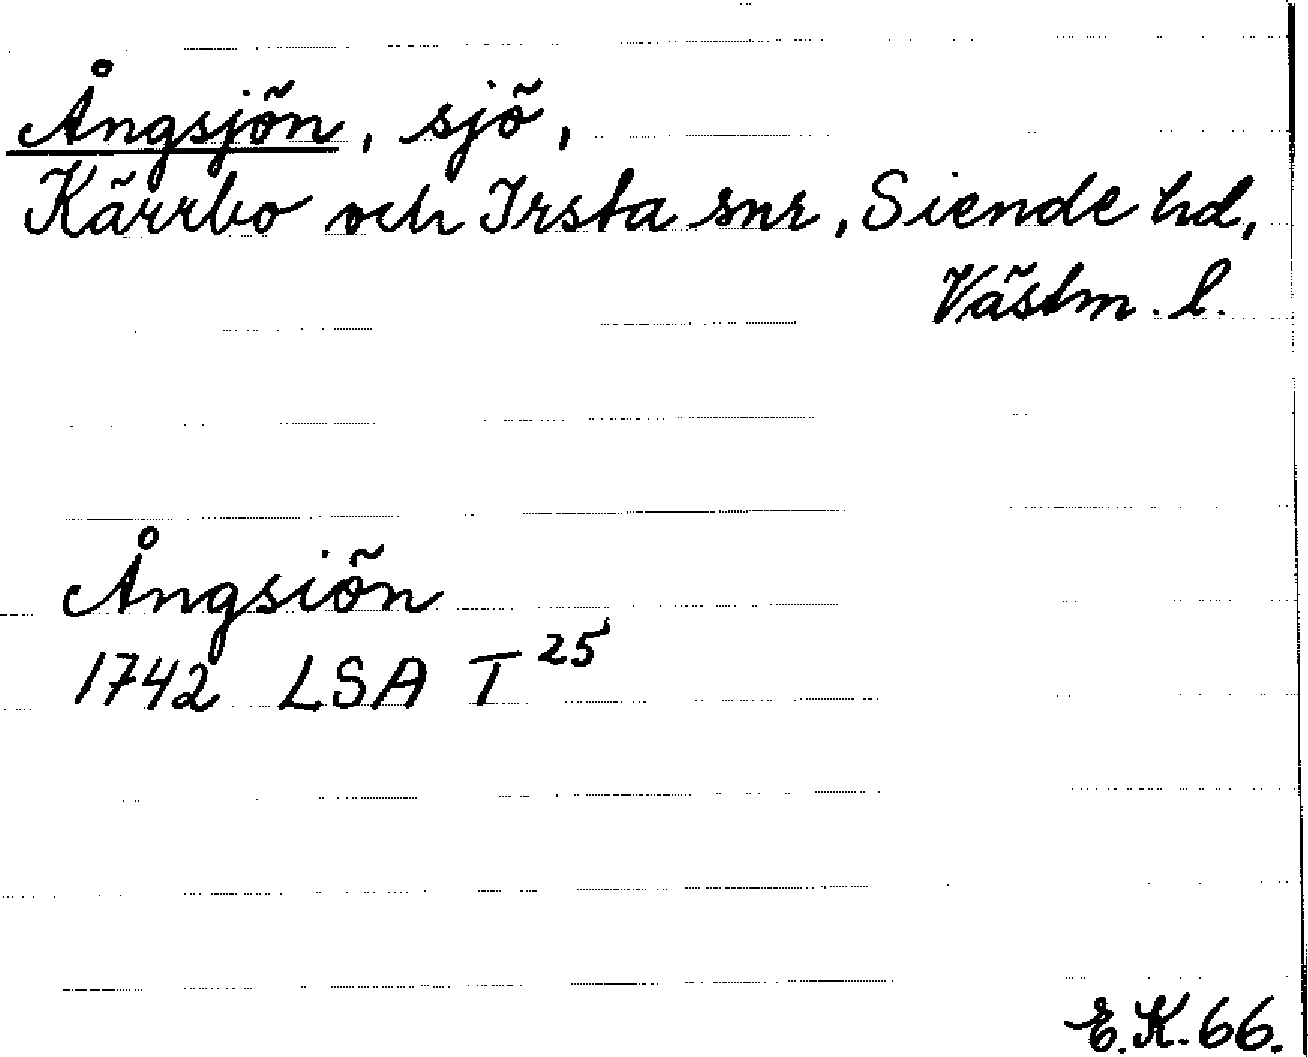 Ångsjön, sjö,
Kärrbo och Irsta snr, Siende hd,
Västm. l.
Ångsiön
1742 LSA T 25
E.K. 66.